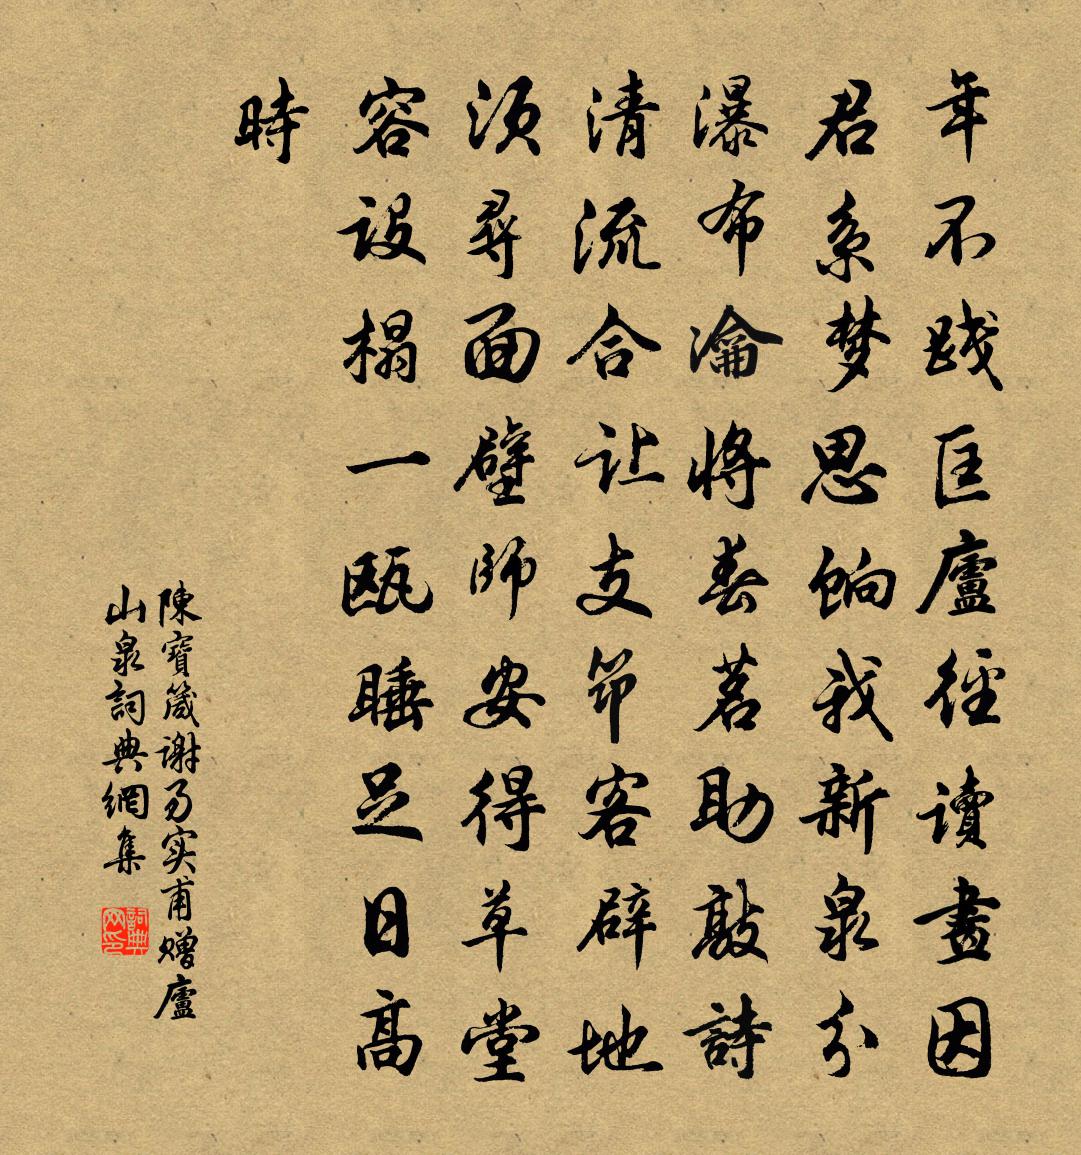 年不踐匡廬徑讀畫因
君系梦思餉我新泉分
瀑布瀹將春茗助敲詩
清流合让支筇客辟地
须尋面壁師安得草堂
容設榻一瓯睡足日高
時
陳寶箴謝易实甫贈廬
山泉詞典網集
詞典
网印